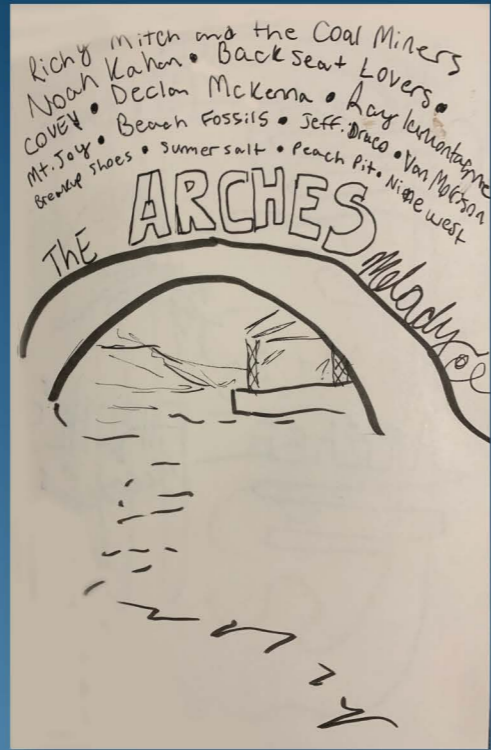 Richy Mitch and the Coal Miners
Noah Kahan • Back Seat Lovers •
COVEY • Declan McKenna • Ray lamontagne
Mt. Joy • Beach Fossils • Jeff. Draco • Van Morison
Breakup Shoes • Summer salt • Peach Pit • Nicole west
The ARCHES Melady